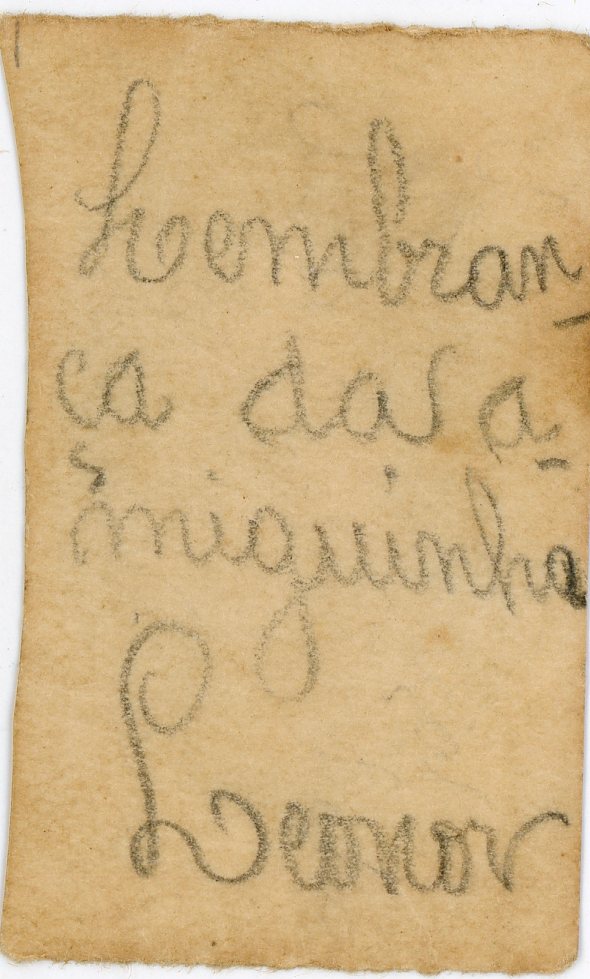 Lembran-
ça das a-
miguinha
Leonor